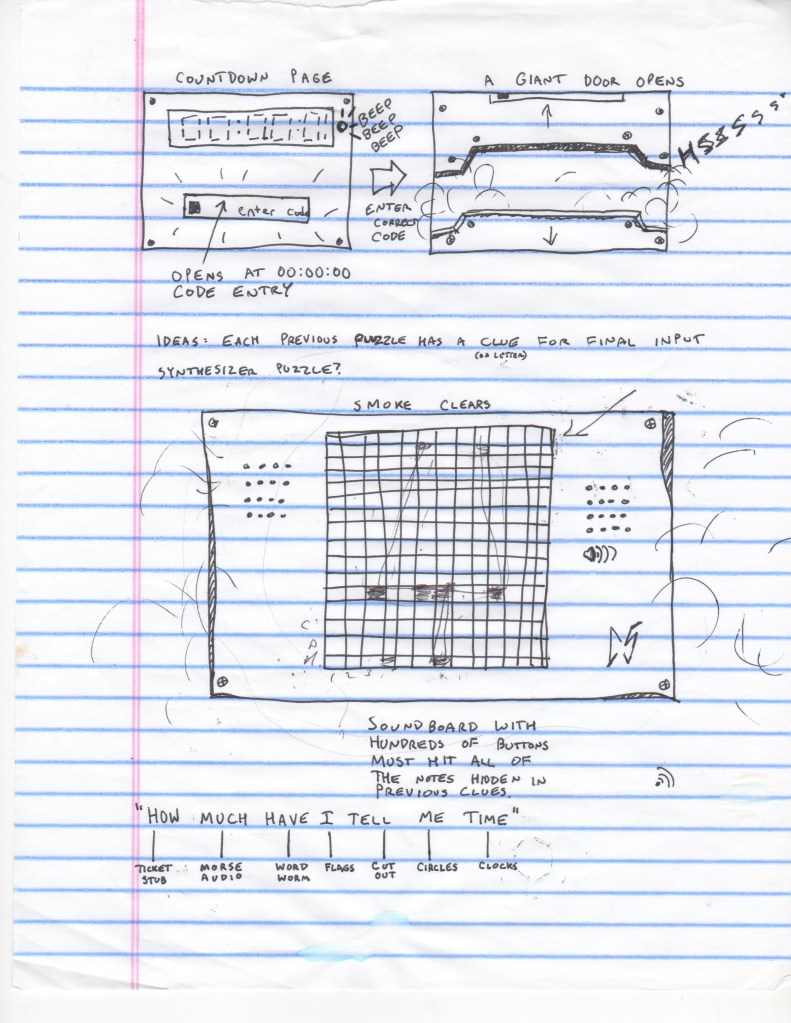 COUNTDOWN PAGE
A GIANT DOOR OPENS
BEEP
BEEP
BEEP
HSSSSSS
enter code
ENTER
CORRECT
CODE
OPENS AT 00:00:00
CODE ENTRY
IDEAS: EACH PREVIOUS PUZZLE HAS A CLUE FOR FINAL INPUT
(OR LETTER)
SYNTHESIZER PUZZLE?
SMOKE CLEARS
C
A
1 2 3
SOUNDBOARD WITH
HUNDREDS OF BUTTONS
MUST HIT ALL OF
THE NOTES HIDDEN IN
PREVIOUS CLUES.
"HOW MUCH HAVE I TELL ME TIME"
TICKET STUB
MORSE AUDIO
WORD WORM
FLAGS
CUT OUT
CIRCLES
CLOCKS